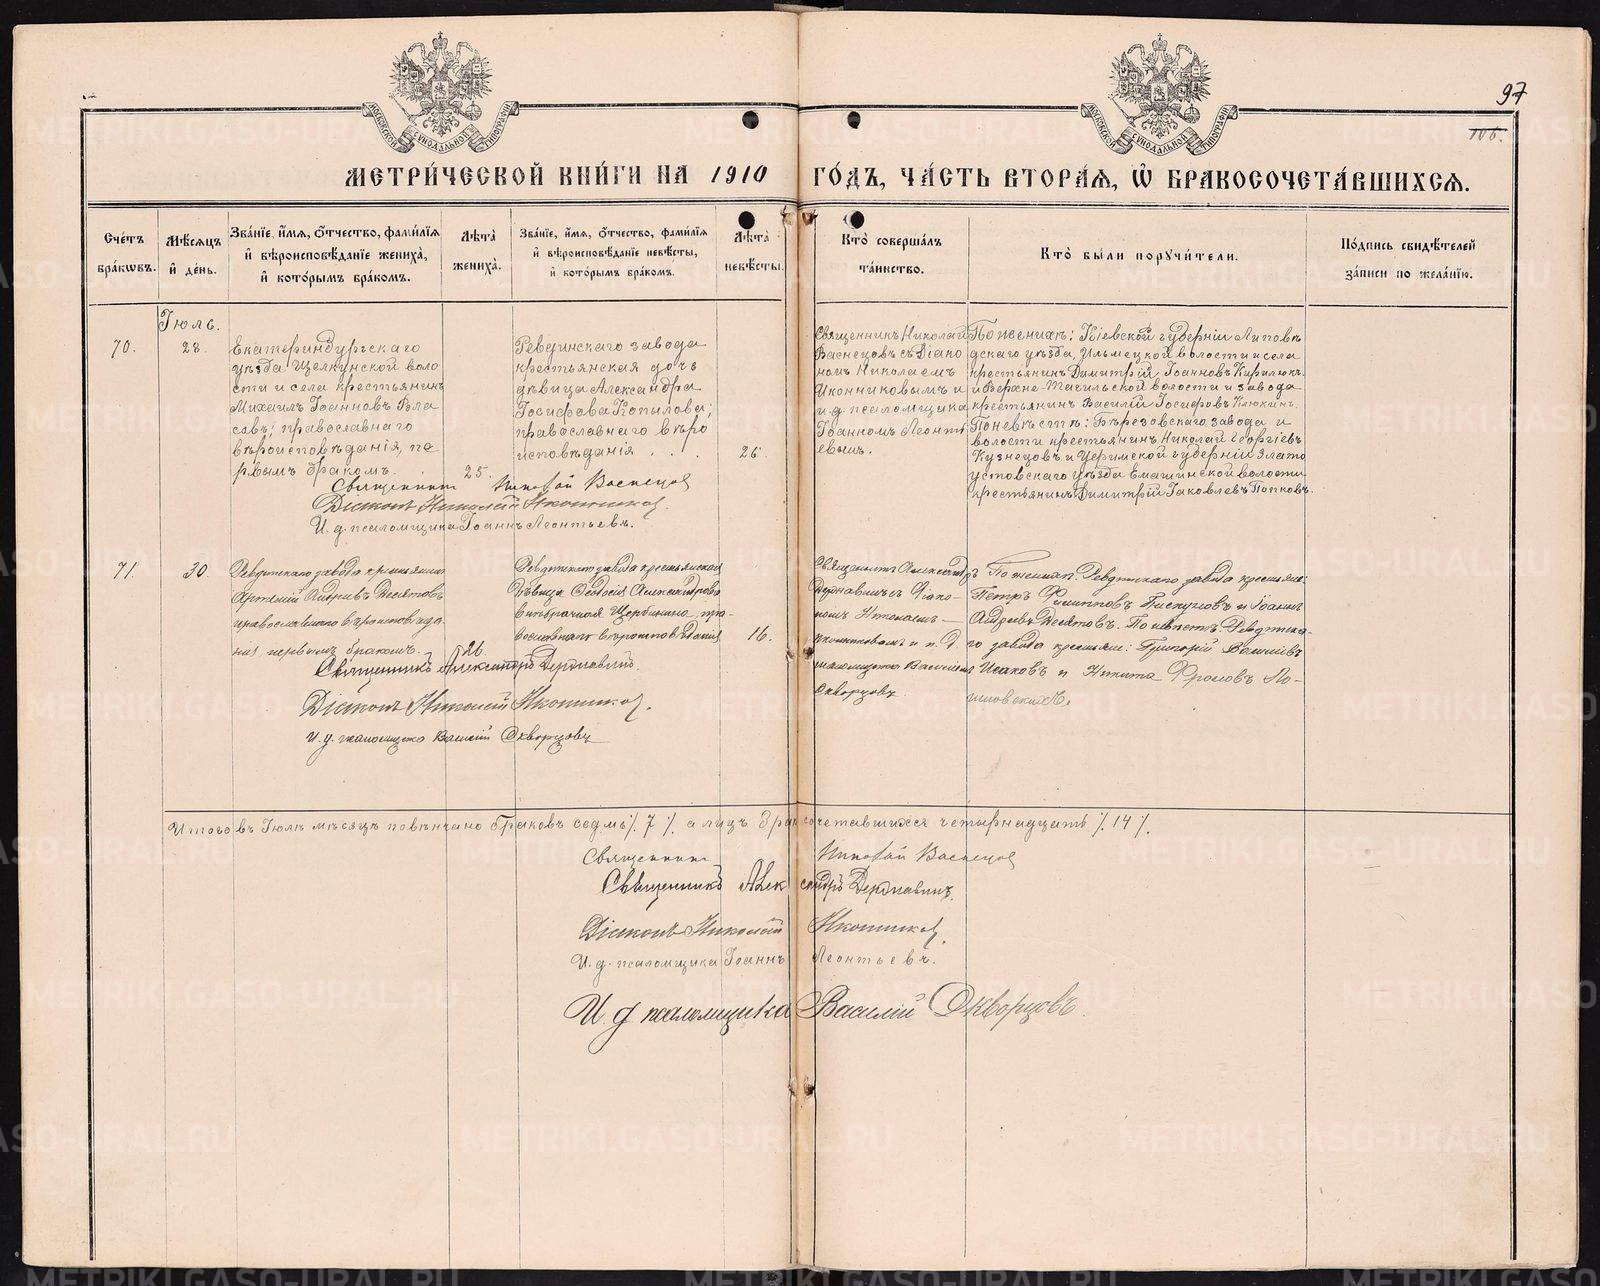 97
106.
МОСКОВСКОЙ СѴНОДАЛЬНОЙ ТИПОГРАФІИ
МОСКОВСКОЙ СѴНОДАЛЬНОЙ ТИПОГРАФІИ
МЕТРИ́ЧЕСКОЙ КНИ́ГИ НА 1910 ГО́ДЪ, ЧА́СТЬ ВТОРА́Я, Ѡ БРАКОСОЧЕТА́ВШИХСЯ.
Сче́тъ бра́кѡвъ.
Мѣ́сяцъ и҆ де́нь.
Зва́нїе, и҆́мя, ѻ҆́тчество, фамѝлїя и҆ вѣроисповѣ́данїе жениха̀, и҆ кото́рымъ бра́комъ.
Лѣ́та жениха̀.
Зва́нїе, и҆́мя, ѻ҆́тчество, фамѝлїя и҆ вѣроисповѣ́данїе невѣ́сты, и҆ кото́рымъ бра́комъ.
Лѣ́та невѣ́сты.
Кто̀ соверша́лъ та́инство.
Кто̀ бы́ли поручи́тели.
По́дпись свидѣ́телей за́писи по жела́нїю.
Іюль.
70.
28.
Екатеринбургскаго
уѣзда Щелкунской воло
сти и села крестьянинъ
Михаилъ Іоанновъ Вла
совъ; православнаго
вѣроисповѣданія, пе
рвымъ бракомъ.
25.
Ревдинскаго завода
крестьянская дочь
дѣвица Александра
Іосифова Копылова;
православнаго вѣро
исповѣданія
26.
Священникъ Николай
Васнецовъ съ Діако
номъ Николаемъ
Иконниковымъ и
и.д. псаломщика
Іоанномъ Леонть
евымъ.
По женихѣ: Кіевской губерніи Липовѣ
цскаго уѣзда, Ильмецкой волости и села
крестьянинъ Димитрій Іоанновъ Кирилюкъ
и Верхне-Тагильской волости и завода
крестьянинъ Василій Іосифовъ Клюкинъ.
По невѣстѣ: Березовскаго завода и
волости крестьянинъ Николай Георгіевъ
Кузнецовъ и Уфимской губерніи Злато
устовскаго уѣзда Емашинской волости
крестьянинъ Димитрій Іаковлевъ Попковъ.
Священникъ Николай Васнецовъ
Діаконъ Николай Иконниковъ.
И.д. псаломщика Іоаннъ Леонтьевъ.
71.
30
Ревдинскаго завода крестьянинъ
Артемій Андреевъ Десятовъ
православнаго вѣроисповѣда
нія первымъ бракомъ.
26.
Ревдинскаго завода крестьянская
дѣвица Ѳеодосія Александрова
внѣбрачная Щербинина, пра-
вославнаго вѣроисповѣданія
16.
Священникъ Александръ
Державинъ съ Діако-
номъ Николаемъ
Иконниковымъ и и.д.
псаломщика Василіемъ
Скворцовъ.
По женихѣ: Ревдинскаго завода крестьяне:
Петръ Филипповъ Пискуновъ и Іоаннъ
Андреевъ Десятовъ. По невѣстѣ: Ревдинска-
го завода крестьяне: Григорій Василіевъ
Исаковъ и Никита Фроловъ
Священникъ Александръ Державинъ.
Діаконъ Николай Иконниковъ.
И.д. псаломщика Василій Скворцовъ
Итого въ Іюлѣ мѣсяцѣ повѣнчано браковъ седмь /. 7 /. а лицъ бракосочетавшихся четырнадцать /. 14 /.
Священникъ Николай Васнецовъ
Священникъ Александръ Державинъ.
Діаконъ Николай Иконниковъ.
И.д. псаломщика Іоаннъ Леонтьевъ.
И.д псаломщика Василій Скворцовъ.
METRIKI.GASO-URAL.RU